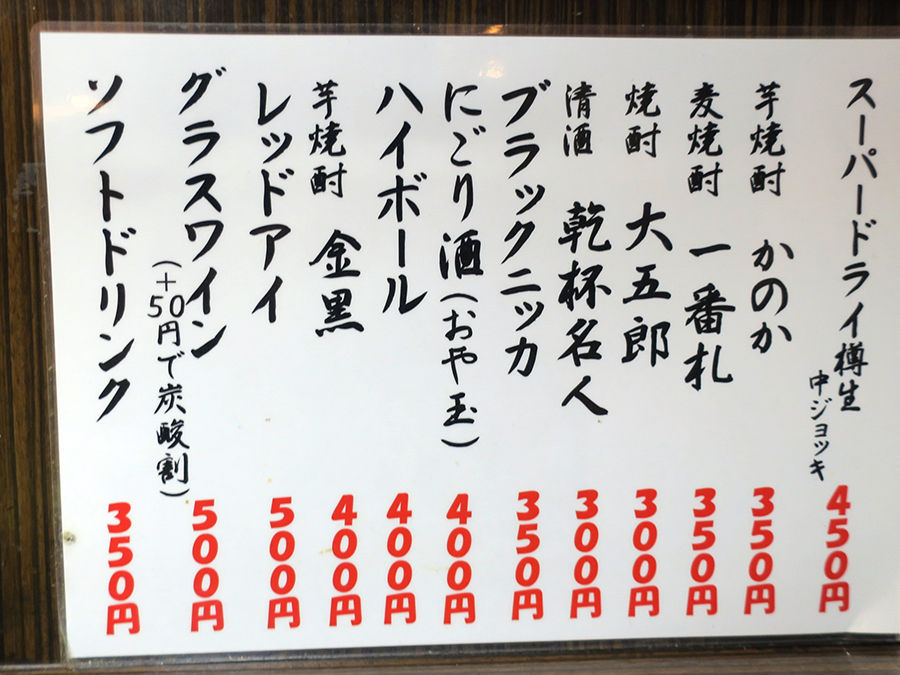 スーパードライ樽生
中ジョッキ
450円
芋焼酎 かのか
350円
麦焼酎 一番札
350円
焼酎 大五郎
300円
清酒 乾杯名人
300円
ブラックニッカ
350円
にごり酒(おや玉)
400円
ハイボール
400円
芋焼酎 金黒
400円
レッドアイ
500円
グラスワイン
(+50円で炭酸割)
500円
ソフトドリンク
350円